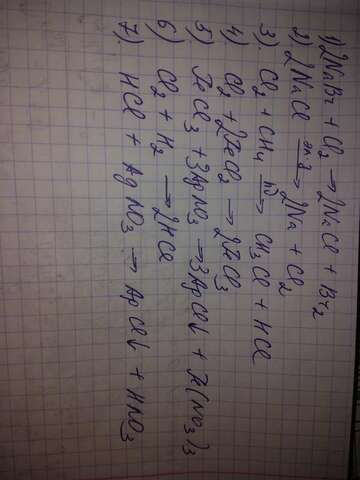 1) 2NaBr + Cl2 → 2NaCl + Br2
2) 2NaCl эл-з→ 2Na + Cl2
3). Cl2 + CH4 hν→ CH3Cl + HCl
4) Cl2 + 2FeCl2 → 2FeCl3
5) FeCl3 + 3AgNO3 → 3AgCl↓ + Fe(NO3)3
6) Cl2 + H2 → 2HCl
7). HCl + AgNO3 → AgCl↓ + HNO3